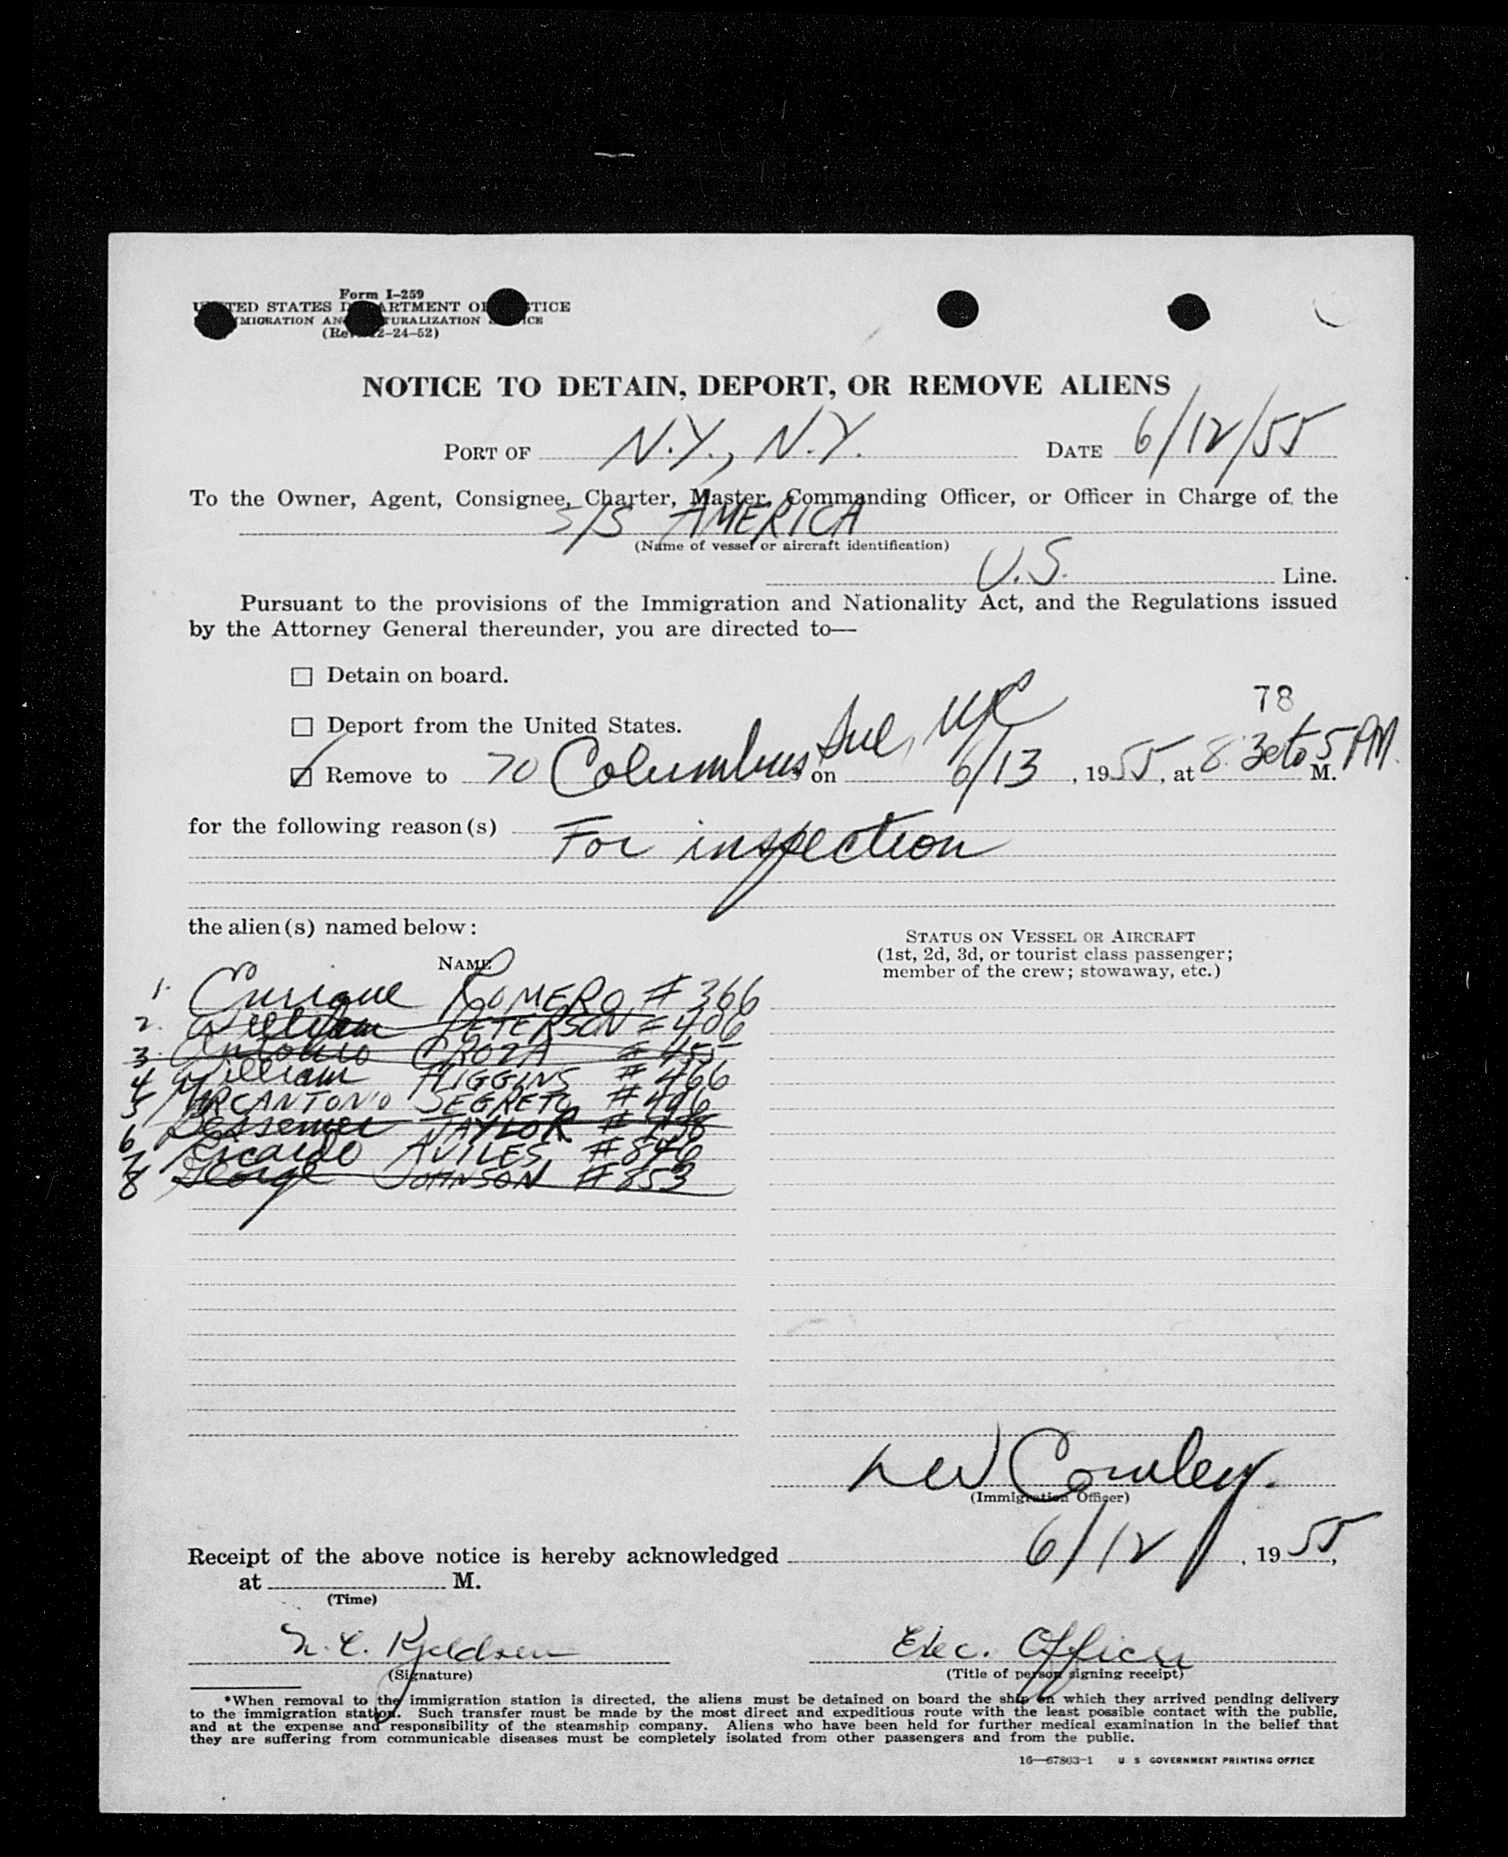 Form I-259
UNITED STATES DEPARTMENT OF JUSTICE
IMMIGRATION AND NATURALIZATION SERVICE
(Rev. 12-24-52)
NOTICE TO DETAIN, DEPORT, OR REMOVE ALIENS
PORT OF N.Y., N.Y. DATE 6/12/55
To the Owner, Agent, Consignee, Charter, Master, Commanding Officer, or Officer in Charge of the
S/S AMERICA
(Name of vessel or aircraft identification)
U.S. Line.
Pursuant to the provisions of the Immigration and Nationality Act, and the Regulations issued
by the Attorney General thereunder, you are directed to—
☐ Detain on board.
78
☐ Deport from the United States.
☑ Remove to 70 Columbus Ave, NYC on 6/13, 1955, at 8:30 to 5 PM. M.
for the following reason(s) For inspection
the alien(s) named below:
STATUS ON VESSEL OR AIRCRAFT
(1st, 2d, 3d, or tourist class passenger;
member of the crew; stowaway, etc.)
NAME
1. Enrique ROMERO # 366
2. William PETERSON # 406
3. Antonio CROZA # 455
4 William HIGGINS # 466
5 MARCANTONIO SEGRETO # 496
6 Bessemer TAYLOR #
7 Ricardo AVILES # 846
8 George JOHNSON # 853
Cowley.
(Immigration Officer)
Receipt of the above notice is hereby acknowledged 6/12, 1955,
at M.
(Time)
Kjeldsen Exec. Officer
(Signature) (Title of person signing receipt)
*When removal to the immigration station is directed, the aliens must be detained on board the ship on which they arrived pending delivery
to the immigration station. Such transfer must be made by the most direct and expeditious route with the least possible contact with the public,
and at the expense and responsibility of the steamship company. Aliens who have been held for further medical examination in the belief that
they are suffering from communicable diseases must be completely isolated from other passengers and from the public.
16—67863-1 U S GOVERNMENT PRINTING OFFICE